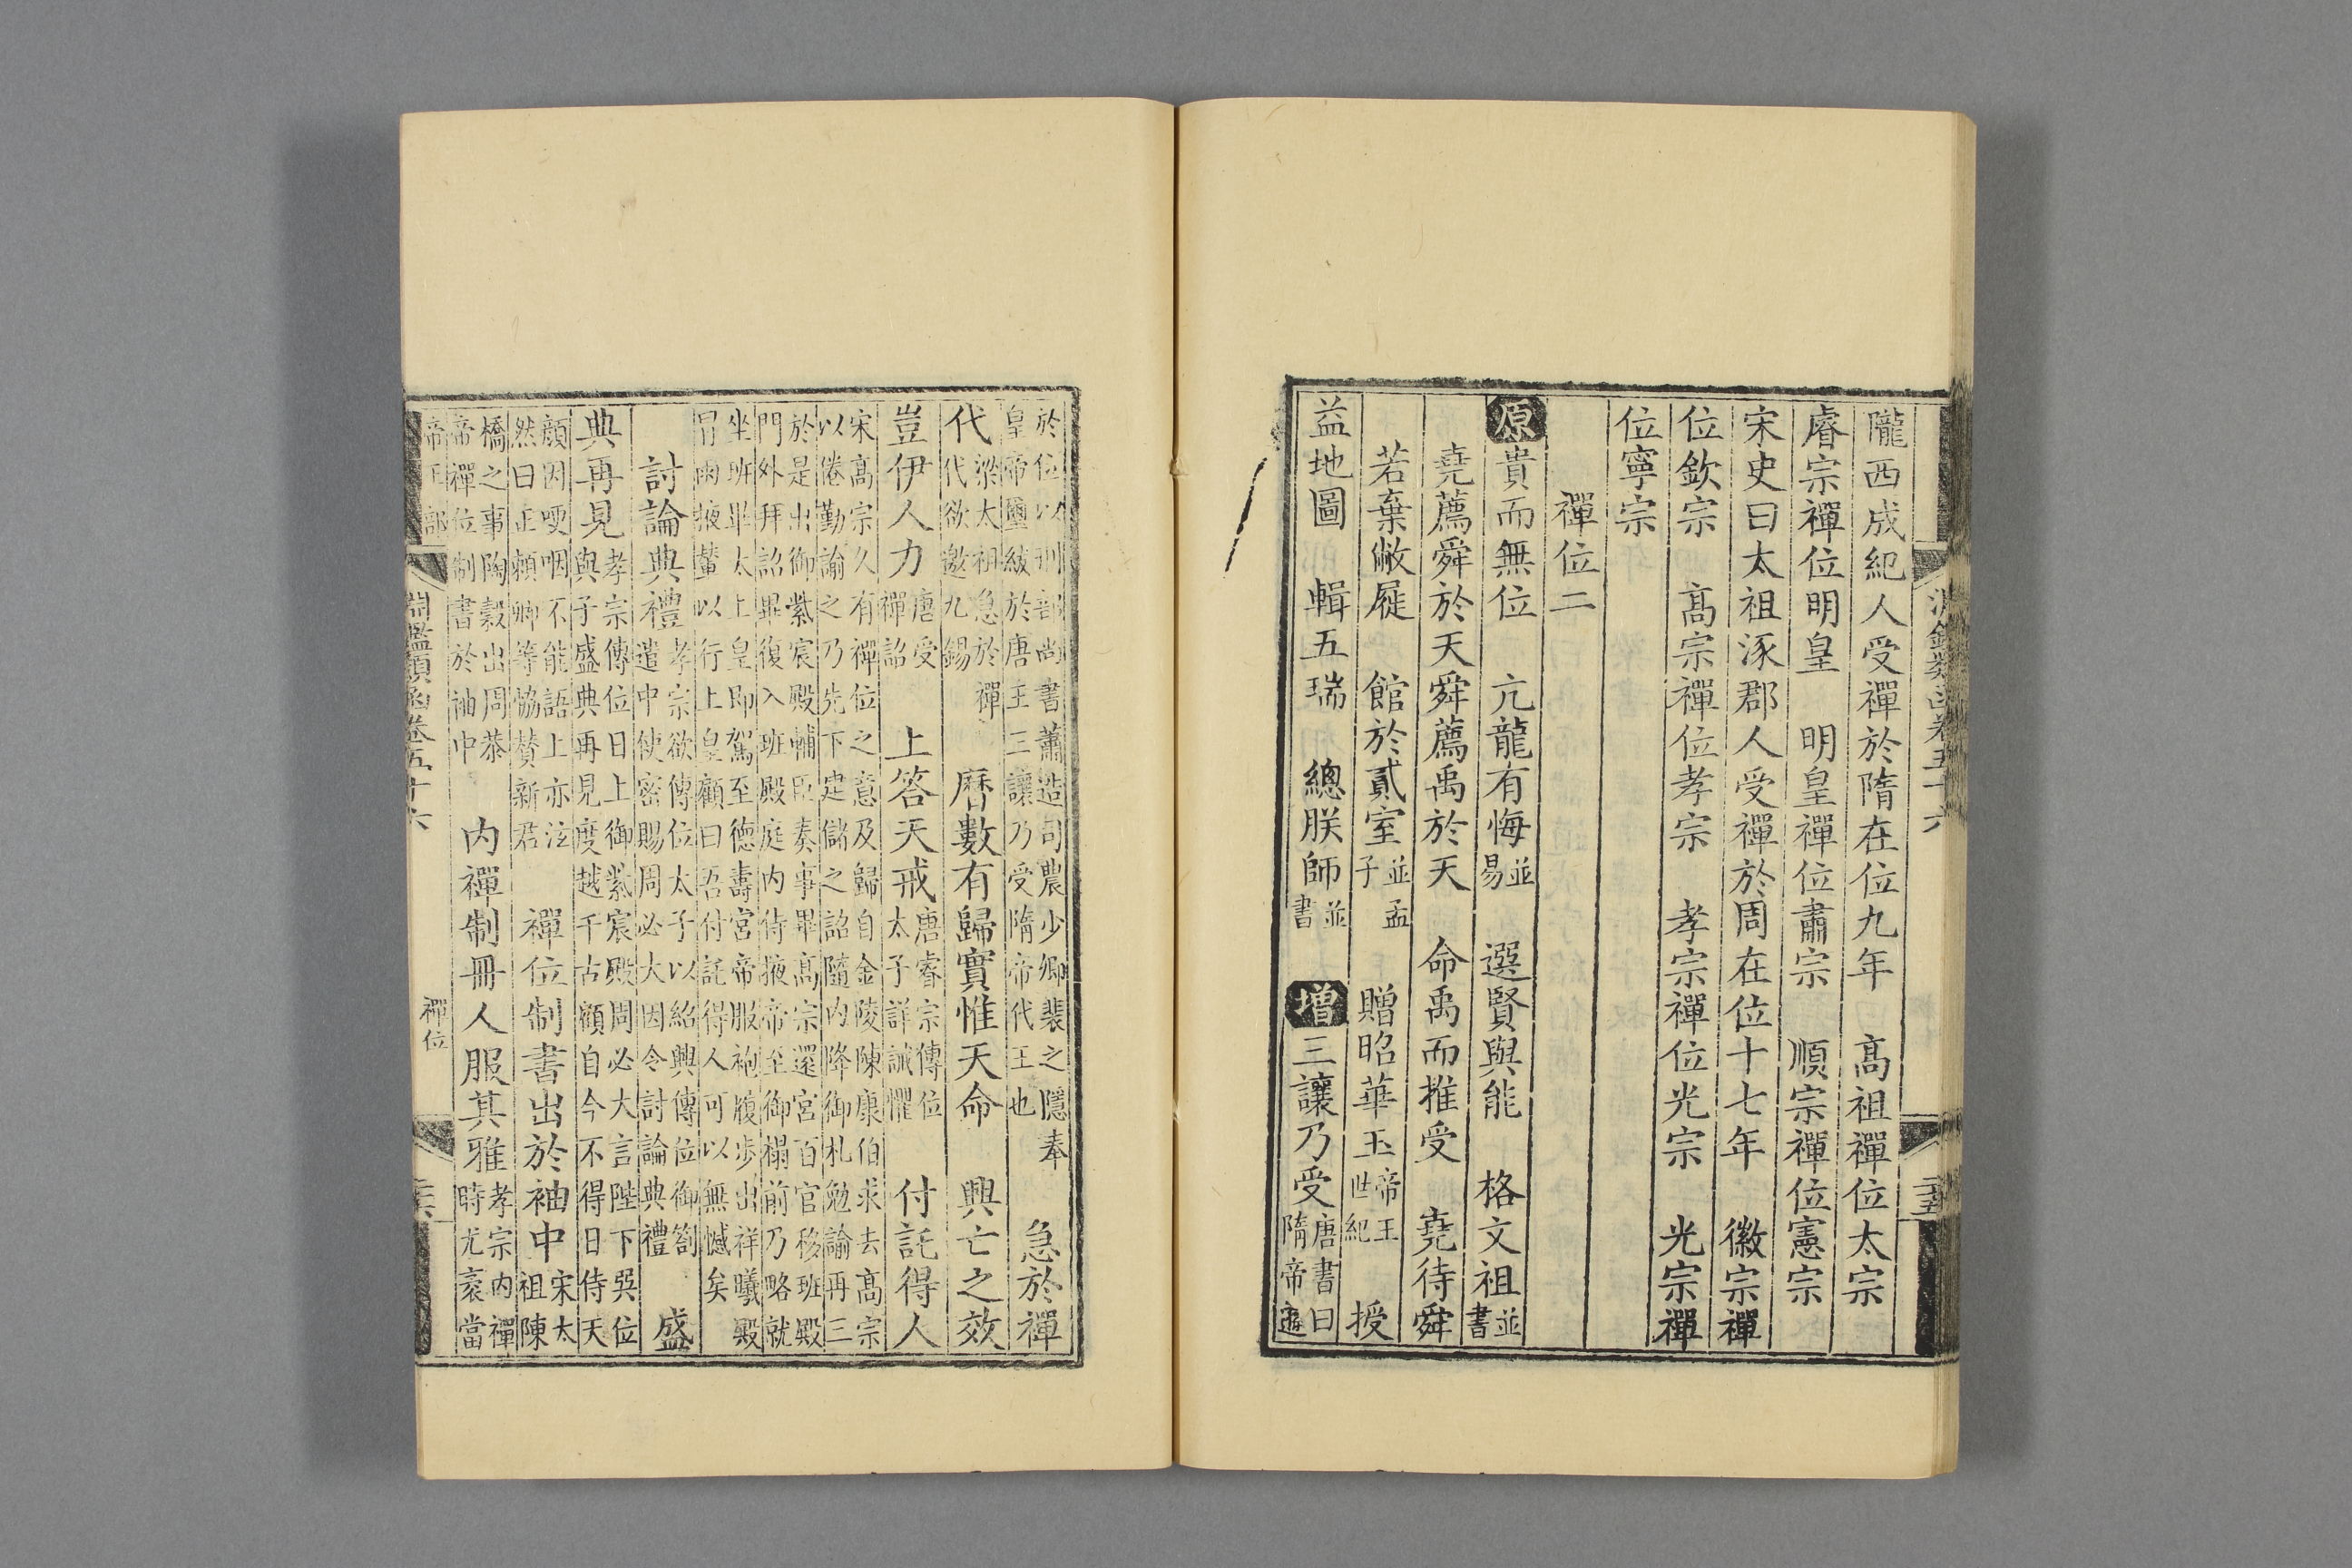 隴西成紀人受禪於隋在位九年　高祖禪位太宗
睿宗禪位明皇　明皇禪位肅宗　順宗禪位憲宗
宋史曰太祖涿郡人受禪於周在位十七年　徽宗禪
位欽宗　高宗禪位孝宗　孝宗禪位光宗　光宗禪
位寧宗
禪位二
原貴而無位　亢龍有悔並易　選賢與能　格文祖並書
堯薦舜於天舜薦禹於天　命禹而推受　堯待舜
若棄敝屣　館於貳室並孟子　贈昭華玉帝王世紀　授
益地圖　輯五瑞　總朕師並書　增三讓乃受唐書曰隋帝遜
於位以刑部尚書蕭造司農少卿裴之隱奉
皇帝璽紱於唐王三讓乃受隋帝代王也
急於禪
代梁太祖急於禪代欲邀九錫　曆數有歸實惟天命　興亡之效
豈伊人力唐受禪詔　上答天戒唐睿宗傳位太子詳誡懼　付託得人
宋高宗久有禪位之意及歸自金陵陳康伯求去高宗
以倦勤諭之乃先下建儲之詔隨內降御札勉諭再三
於是出御紫宸殿輔臣奏事畢高宗還宮百官移班殿
門外拜詔畢復入班殿庭內侍掖帝至御榻前乃略就
坐班畢太上皇即駕至德壽宮帝服袍履步出祥曦殿
冒雨掖輦以行上皇顧曰吾付託得人可以無憾矣
討論典禮孝宗欲傳位太子以紹興傳位御劄遣中使密賜周必大因令討論典禮　盛
典再見孝宗傳位日上御紫宸殿周必大言陛下巽位與子盛典再見度越千古顧自今不得日侍天
顏因哽咽不能語上亦泫然曰正賴卿等協贊新君　禪位制書出於袖中宋太祖陳
橋之事陶穀出周恭帝禪位制書於袖中　內禪制冊人服其雅孝宗內禪時尤袤當
淵鑑類函卷五十六
禪位